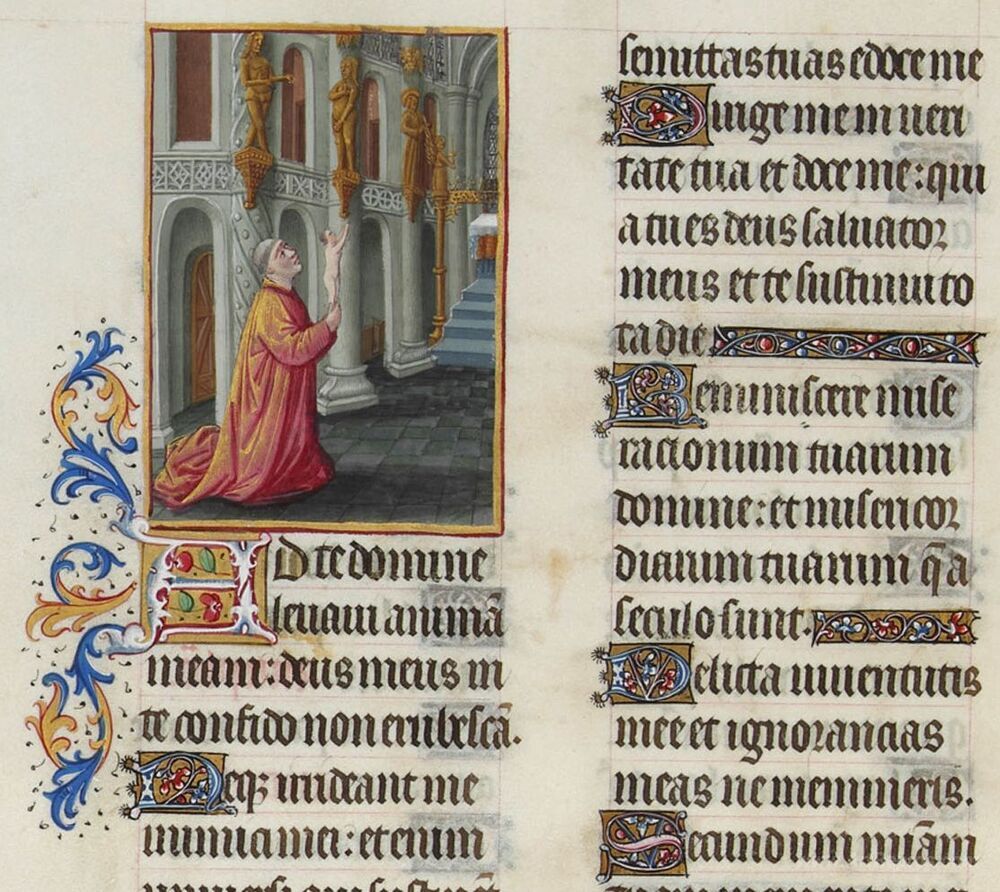 AD te domine
leuaui animā
meam: deus meus in
te confido non erubescā.
Neqꝫ irrideant me
inimici mei: etenim
uniuersi qui sustinēt
semittas tuas edoce me
Dirige me in ueri
tate tua et doce me: qui
a tu es deus saluator
meus et te sustinui to
ta die.
Reminiscere mise
racionum tuarum
domine: et misericor
diarum tuarum q̄ a
seculo sunt.
Delicta iuuentutis
mee et ignorancias
meas ne memineris.
Secundum miām